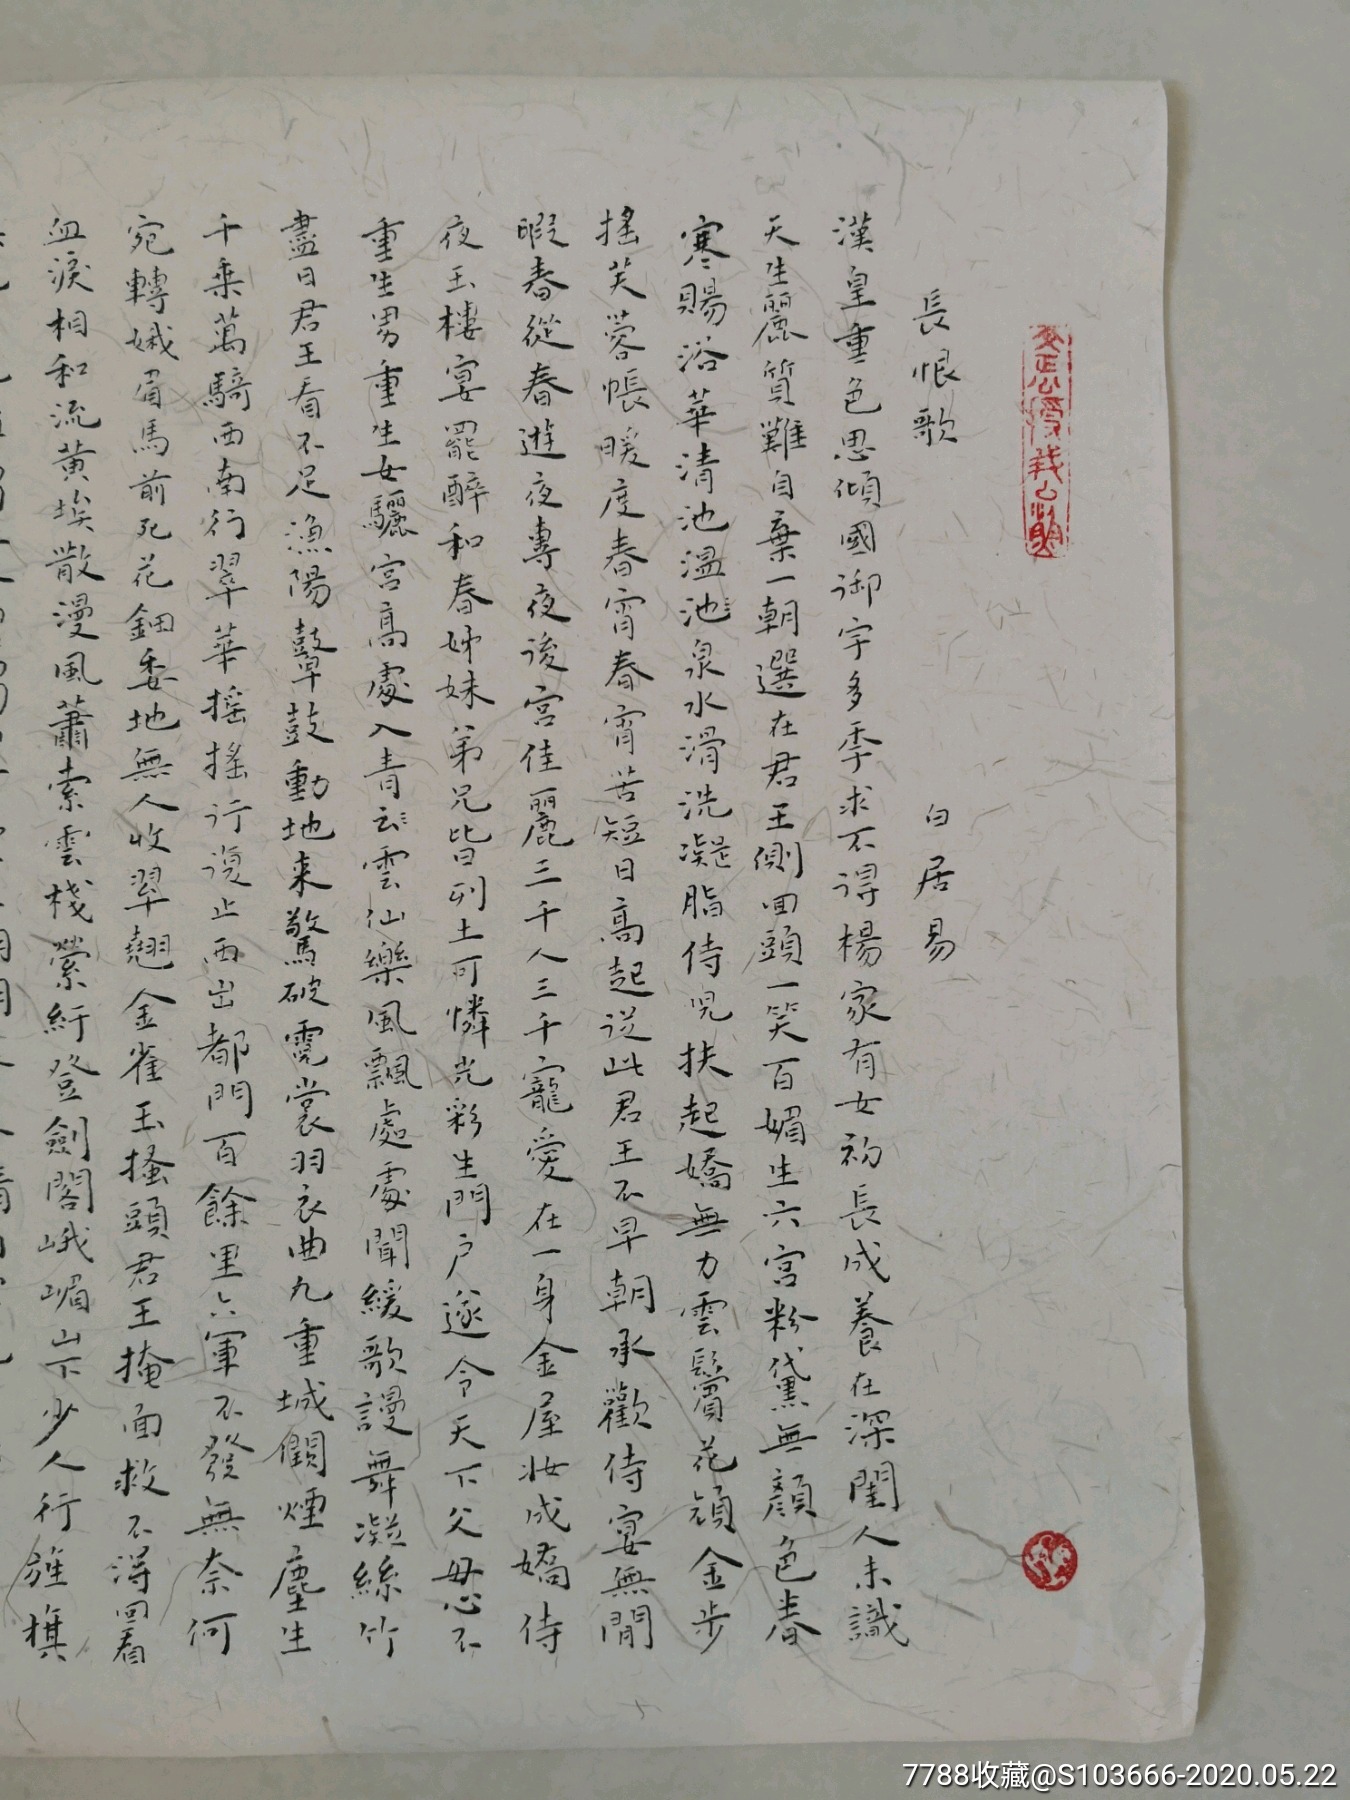 長恨歌
白居易
漢皇重色思傾國御宇多季求不得楊家有女初長成養在深閨人未識
天生麗質難自棄一朝選在君王側回頭一笑百媚生六宮粉黛無顏色春
寒賜浴華清池溫池泉水滑洗凝脂侍児扶起嬌無力雲鬢花顏金步
搖芙蓉帳暖度春宵春宵苦短日高起從此君王不早朝承歡侍宴無閒
暇春從春遊夜專夜後宮佳麗三千人三千寵愛在一身金屋妝成嬌侍
夜玉樓宴罷醉和春姊妹弟兄皆列土可憐光彩生門戶遂令天下父母心不
重生男重生女驪宮高處入青云雲仙樂風飄處處聞緩歌謾舞凝絲竹
盡日君王看不足漁陽鼙鼓動地来驚破霓裳羽衣曲九重城闕煙塵生
千乘萬騎西南行翠華搖搖行復止西出都門百餘里六軍不發無奈何
宛轉娥眉馬前死花鈿委地無人收翠翹金雀玉搔頭君王掩面救不得回看
血淚相和流黃埃散漫風蕭索雲棧縈紆登劍閣峨嵋山下少人行旌旗
7788收藏@S103666-2020.05.22